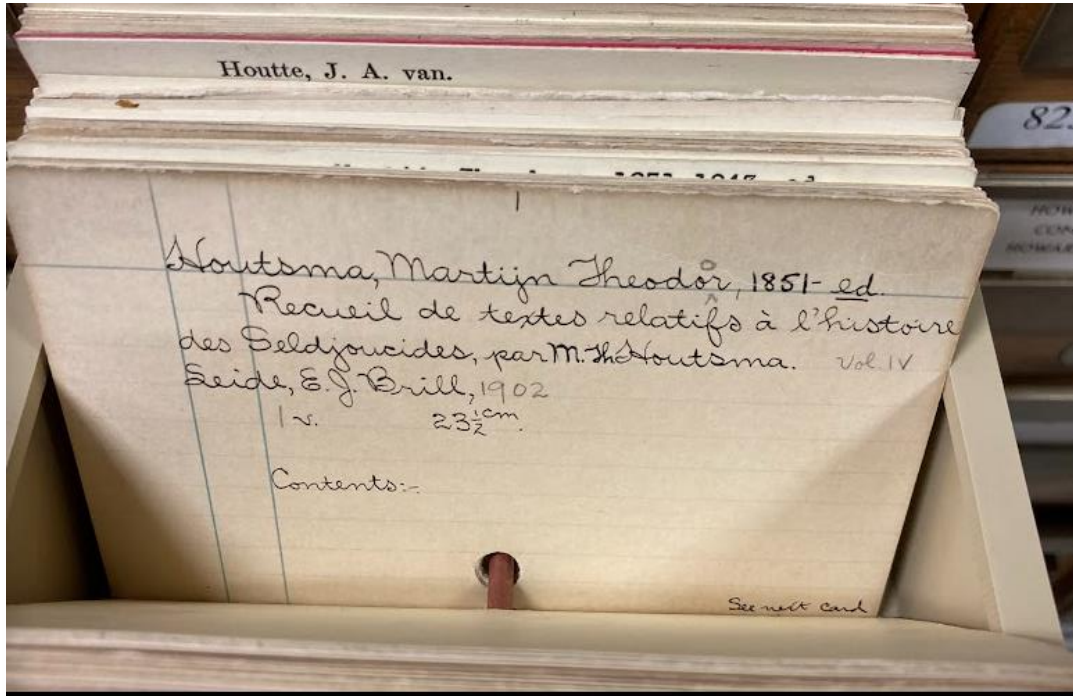 Houtte, J. A. van.
82
1
Houtsma, Martijn Theodor, 1851- ed.
o
^
Recueil de textes relatifs à l'histoire
des Seldjoucides, par M. Th. Houtsma. Vol IV
Leide, E. J. Brill, 1902
1 v. 23½ cm.
Contents:-
See next card